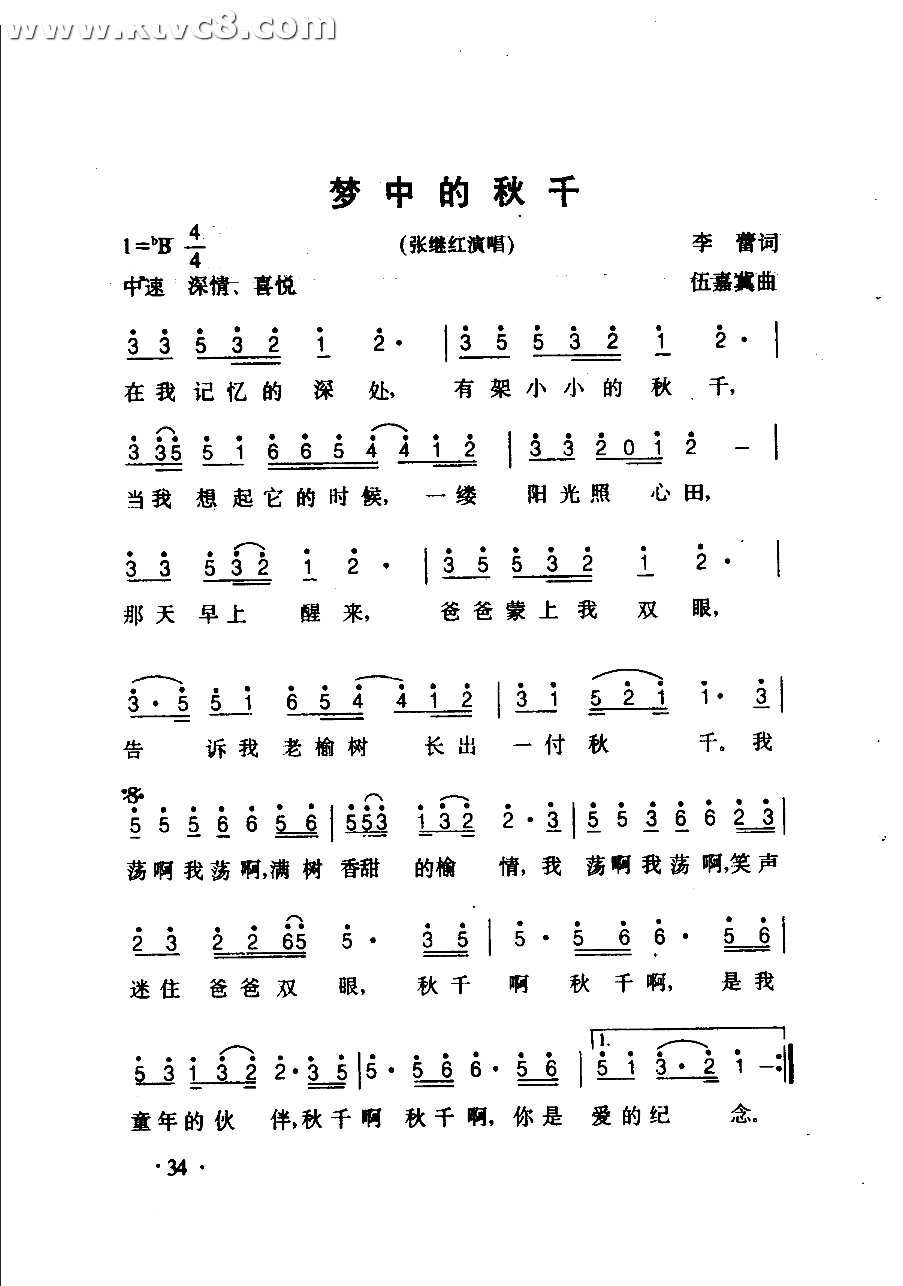 www.ktvc8.com
梦中的秋千
1=♭B 4/4 (张继红演唱) 李蕾词
中速 深情、喜悦 伍嘉冀曲
3 3 5 3 2 1 2· | 3 5 5 3 2 1 2· |
在我记忆的深处, 有架小小的秋千,
3 35 5 1 6 6 5 4 4 1 2 | 3 3 2 0 1 2 － |
当我想起它的时候,一缕 阳光照心田,
3 3 5 3 2 1 2· | 3 5 5 3 2 1 2· |
那天早上醒来, 爸爸蒙上我双眼,
3·5 5 1 6 5 4 4 1 2 | 3 1 5 2 1 1· 3 |
告诉我老榆树长出一付秋千。我
5 5 5 6 6 5 6 | 553 1 3 2 2·3 | 5 5 3 6 6 2 3 |
荡啊我荡啊,满树香甜的榆情,我荡啊我荡啊,笑声
2 3 2 2 65 5· 3 5 | 5· 5 6 6· 5 6 |
迷住爸爸双眼, 秋千啊秋千啊, 是我
5 3 1 3 2 2·3 5 | 5· 5 6 6· 5 6 | 1. 5 1 3·2 1 － :|
童年的伙伴,秋千啊秋千啊,你是爱的纪念。
·34·